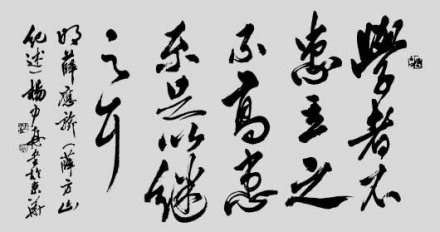 學者不
患立之
不高患
不足以継
之耳
明薛應旂（薛方山
纪述）楊
书於京華